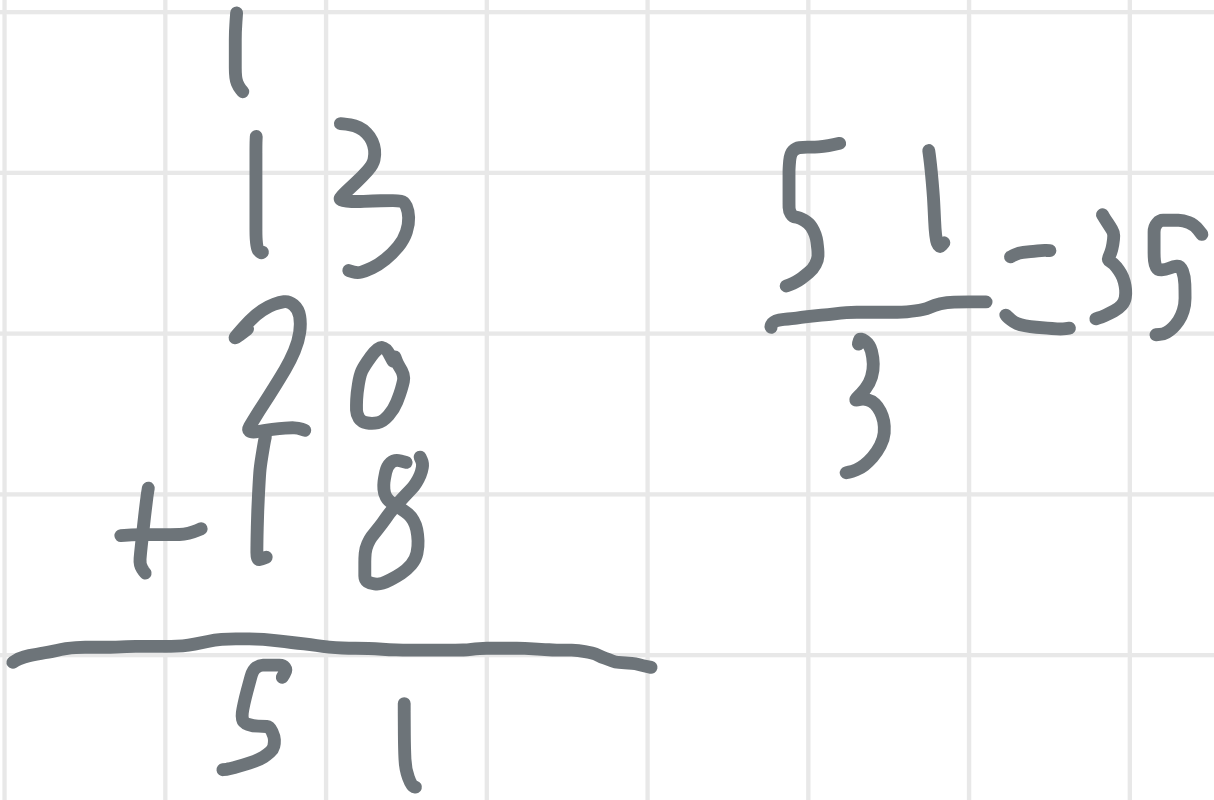 1
13
20
+ 18
51
51
3
= 35